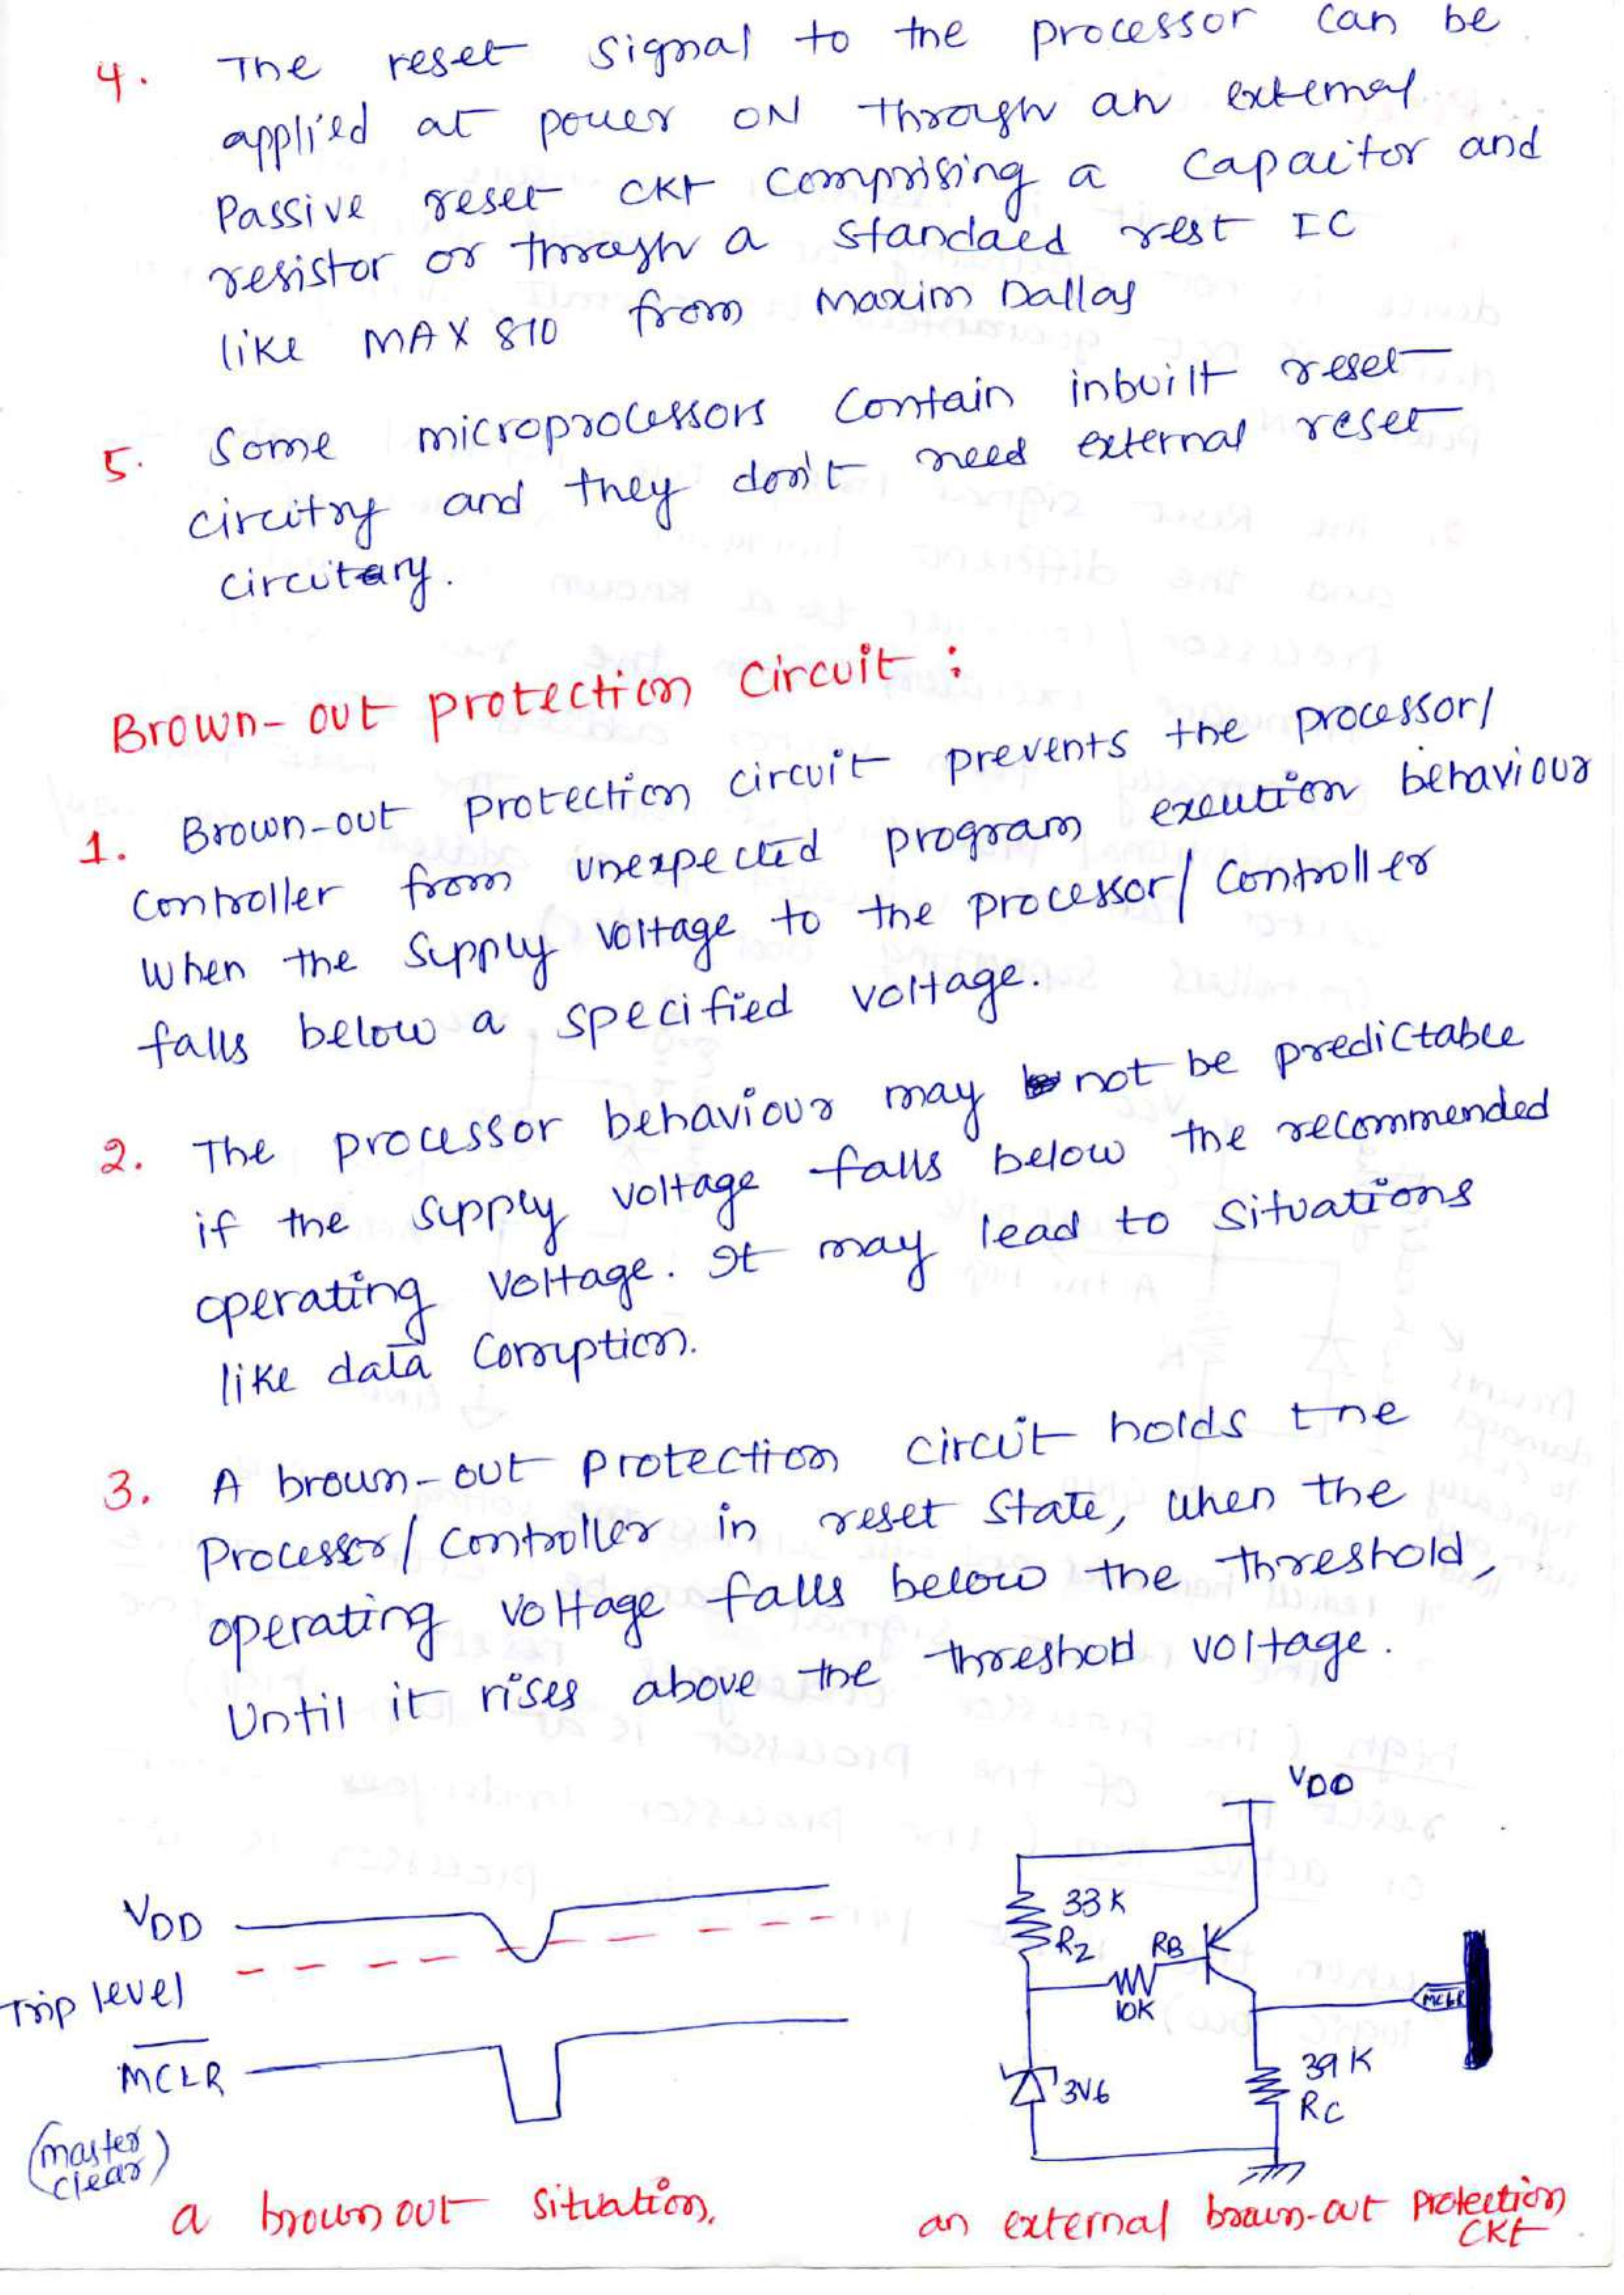 4. The reset signal to the processor can be
applied at power ON through an external
Passive reset ckt comprising a capacitor and
resistor or through a standaed rest IC
like MAX 810 from Maxim Dallas
5. Some microprocessors contain inbuilt reset
circitry and they don't need external reset
circutary.
Brown-out protection circuit :
1. Brown-out protection circuit prevents the processor/
controller from unexpected program exeution behaviour
when the supply voltage to the processor/controller
falls below a specified voltage.
2. The processor behaviour may not be predictable
if the supply voltage falls below the recommended
operating voltage. It may lead to situations
like data corruption.
3. A brown-out protection circuit holds the
Processor/controller in reset state, when the
operating voltage falls below the threshold,
Until it rises above the threshold voltage.
VDD
VDD
33K
R2
RB
10K
Trip level
MCLR
MCLR
3V6
39K
RC
(master
clear)
a brown out situation.
an external brown-out protection
ckt